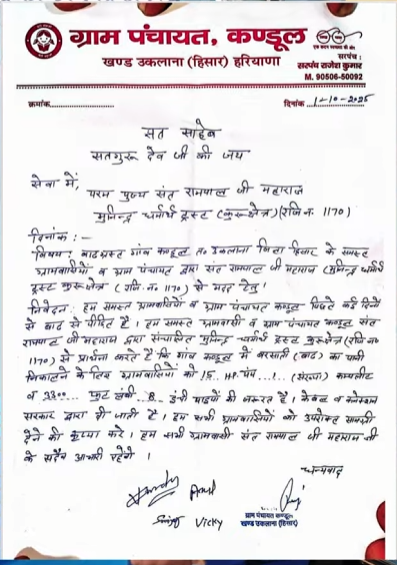 ग्राम पंचायत, कण्डूल
खण्ड उकलाना (हिसार) हरियाणा
सरपंच :
सरपंच राजेश कुमार
M. 90506-50092
क्रमांक....................
दिनांक 1-10-2025
सत साहेब
सतगुरू देव जी की जय
सेवा में,
परम पुज्य संत रामपाल जी महाराज
मुनिन्द्र धर्मार्थ ट्रस्ट (कुरूक्षेत्र) (रजि न. 1170)
दिनांक :-
विषय : बाढग्रस्त गांव कण्डूल त० उकलाना जिला हिसार के समस्त
ग्रामवासियों व ग्राम पंचायत द्वारा संत रामपाल जी महाराज (मुनिन्द्र धर्मार्थ
ट्रस्ट कुरूक्षेत्र (रजि न. 1170) से मदद हेतु।
निवेदन : हम समस्त ग्रामवासियों व ग्राम पंचायत कण्डूल पिछले कई दिनों
से बाढ से पीडित है। हम समस्त ग्रामवासी व ग्राम पंचायत कण्डूल संत
रामपाल जी महाराज द्वारा संचालित मुनिन्द्र धर्मार्थ ट्रस्ट कुरूक्षेत्र (रजि न०
1170) से प्रार्थना करते है कि गांव कण्डूल में बरसाती (बाढ) का पानी
निकालने के लिए ग्रामवासियों को 15 HP पंप ...1... (संख्या) कम्पलीट
व 2300... फुट लंबी ..8.. इंची पाइपों की जरूरत है। केबल व कनेक्शन
सरकार द्वारा दी जाती है। हम सभी ग्रामवासियों को उपरोक्त सामग्री
देने की कृप्या करे। हम सभी ग्रामवासी संत रामपाल जी महाराज जी
के सदैव आभारी रहेंगे।
धन्यवाद
Vicky
ग्राम पंचायत कण्डूल
खण्ड उकलाना (हिसार)